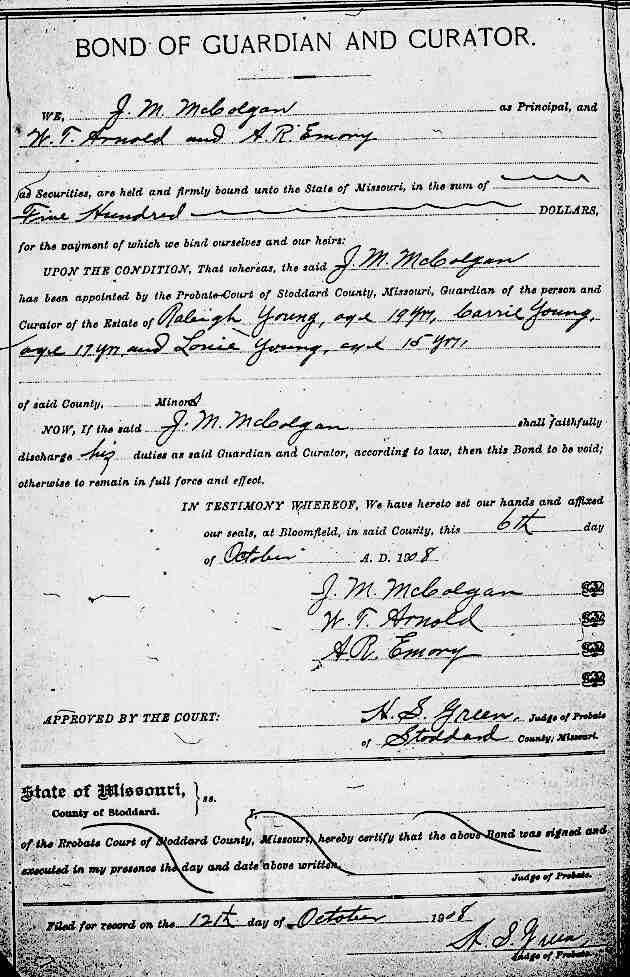 BOND OF GUARDIAN AND CURATOR.
WE, J. M. McColgan as Principal, and
W. T. Arnold and A. R. Emory
as Securities, are held and firmly bound unto the State of Missouri, in the sum of
Five Hundred DOLLARS,
for the payment of which we bind ourselves and our heirs:
UPON THE CONDITION, That whereas, the said J. M. McColgan
has been appointed by the Probate Court of Stoddard County, Missouri, Guardian of the person and
Curator of the Estate of Raleigh Young, age 19 yrs, Carrie Young,
age 17 yrs and Louie Young, age 15 yrs,
of said County, Minors
NOW, If the said J. M. McColgan shall faithfully
discharge his duties as said Guardian and Curator, according to law, then this Bond to be void;
otherwise to remain in full force and effect.
IN TESTIMONY WHEREOF, We have hereto set our hands and affixed
our seals, at Bloomfield, in said County, this 6th day
of October A. D. 1908
J. M. McColgan Seal
W. T. Arnold Seal
A. R. Emory Seal
Seal
APPROVED BY THE COURT: H. S. Green, Judge of Probate
of Stoddard County, Missouri.
State of Missouri, } ss.
County of Stoddard. I,
of the Probate Court of Stoddard County, Missouri, hereby certify that the above Bond was signed and
executed in my presence the day and date above written.
Judge of Probate.
Filed for record on the 12th day of October 1908
H. S. Green,
Judge of Probate.